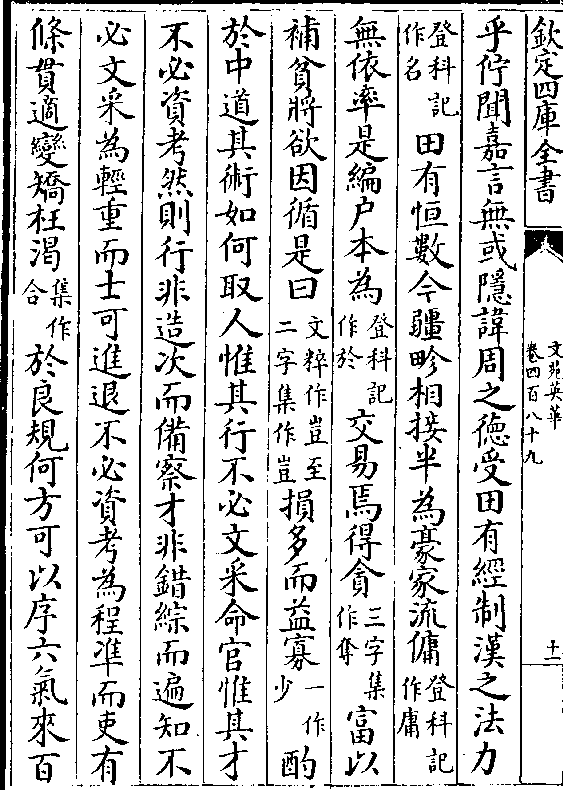 欽定四庫全書
文苑英華
卷四百八十九
十一
乎佇聞嘉言無或隱諱周之德受田有經制漢之法力
登科記作名田有恒數今疆畛相接半為豪家流傭登科記作庸
無依率是編户本為登科記作於交易焉得貪三字集作奪富以
補貧將欲因循是曰文粹作豈至二字集作豈損多而益寡一作少酌
於中道其術如何取人惟其行不必文采命官惟其才
不必資考然則行非造次而備察才非錯綜而遍知不
必文采為輕重而士可進退不必資考為程準而吏有
條貫適變矯枉渴集作合於良規何方可以序六氣來百